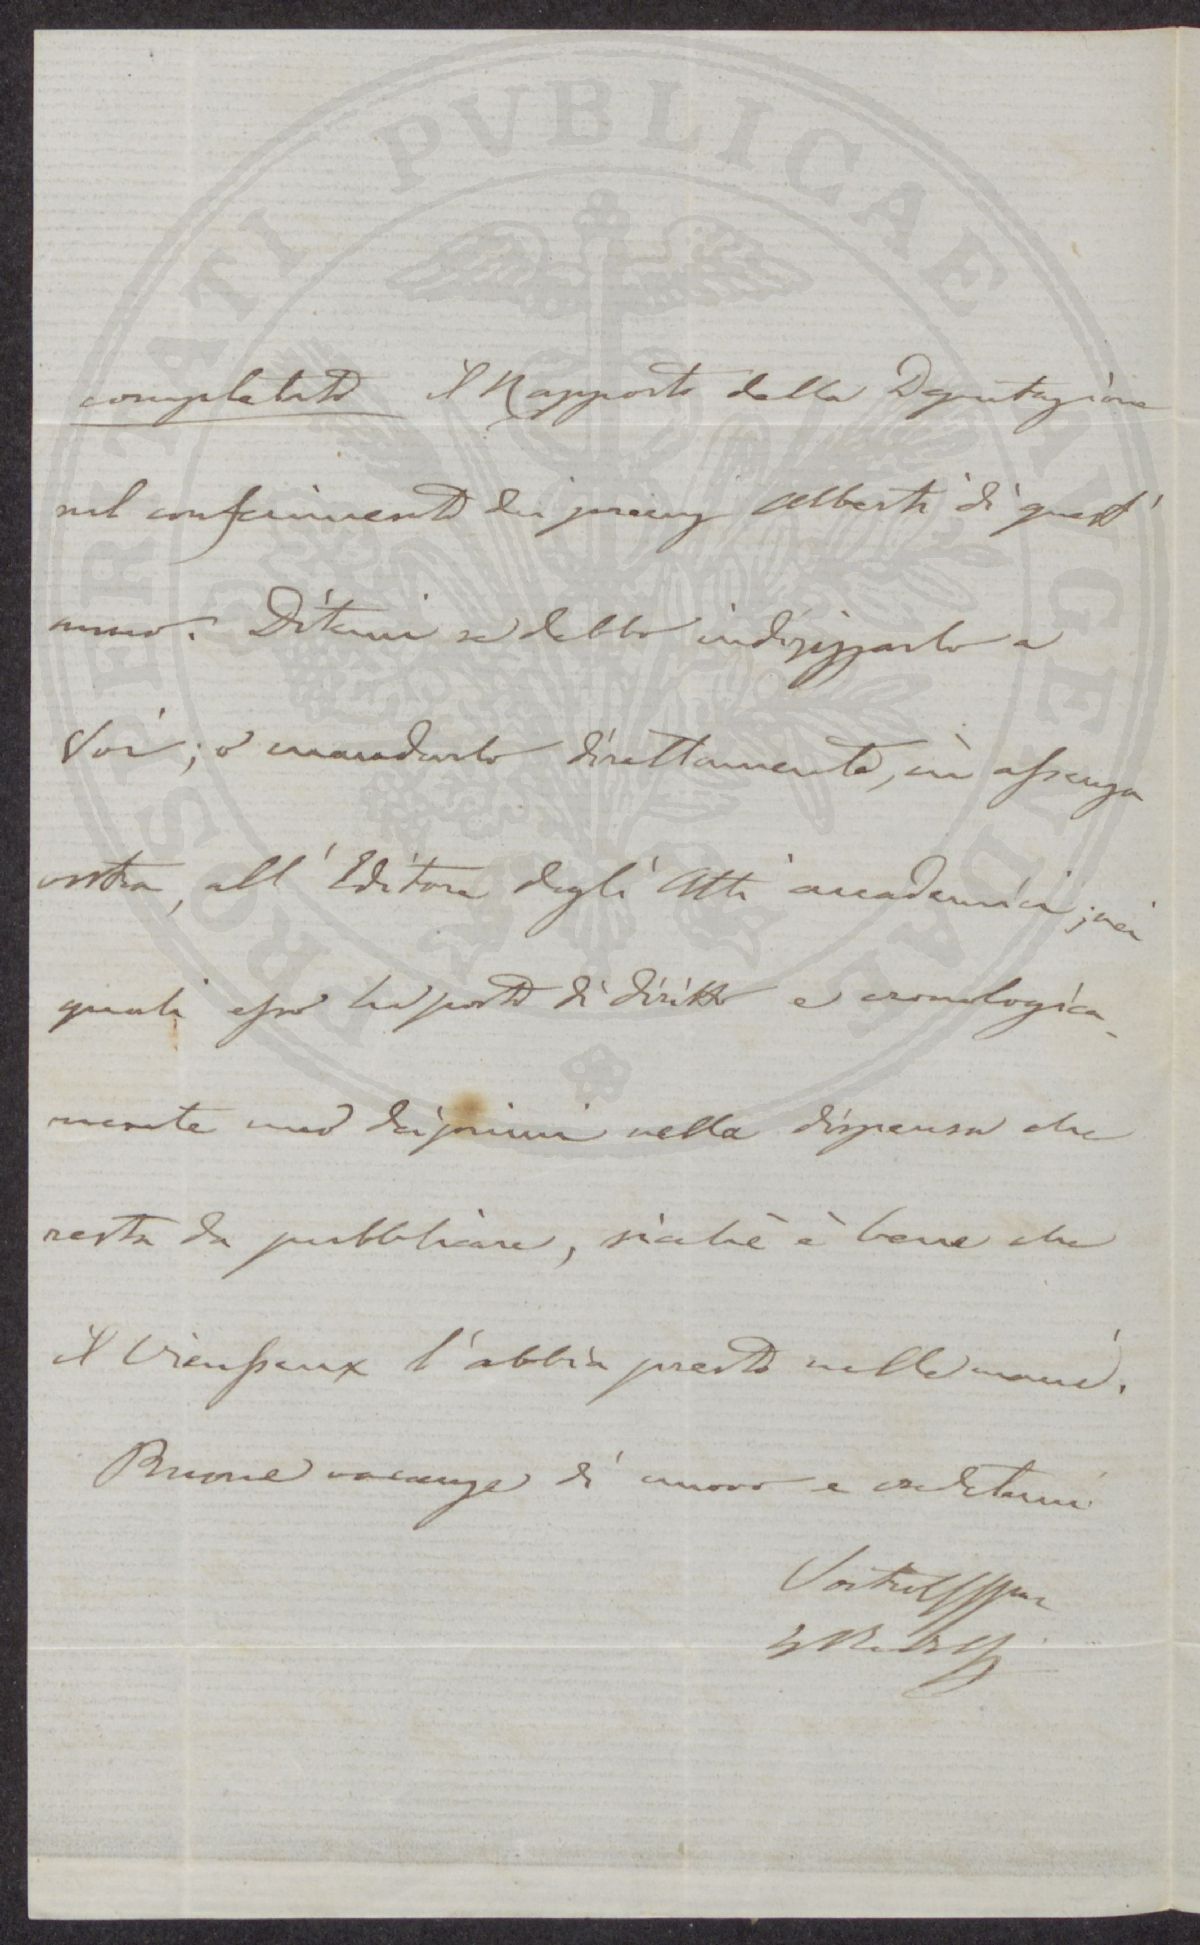 PROSPERITATI PVBLICAE AVGENDAE
completato il Rapporto della Deputazione
nel conferimento dei premj Alberti di quest'
anno. Ditemi se debbo indirizzarlo a
Voi; o mandarlo direttamente, in assenza
vostra, all'Editore degli Atti accademici; nei
quali esso ha posto di diritto e cronologica-
mente uno dei primi nella dispensa che
resta da pubblicare, sicchè è bene che
il Vieusseux l'abbia presto nelle mani.
Buone vacanze di nuovo e credetemi